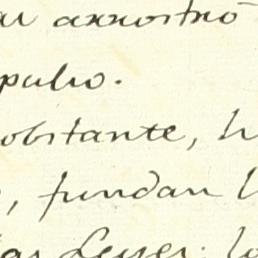 arrostró
pulso.
obstante, h
, fundan l
Leyes: lo